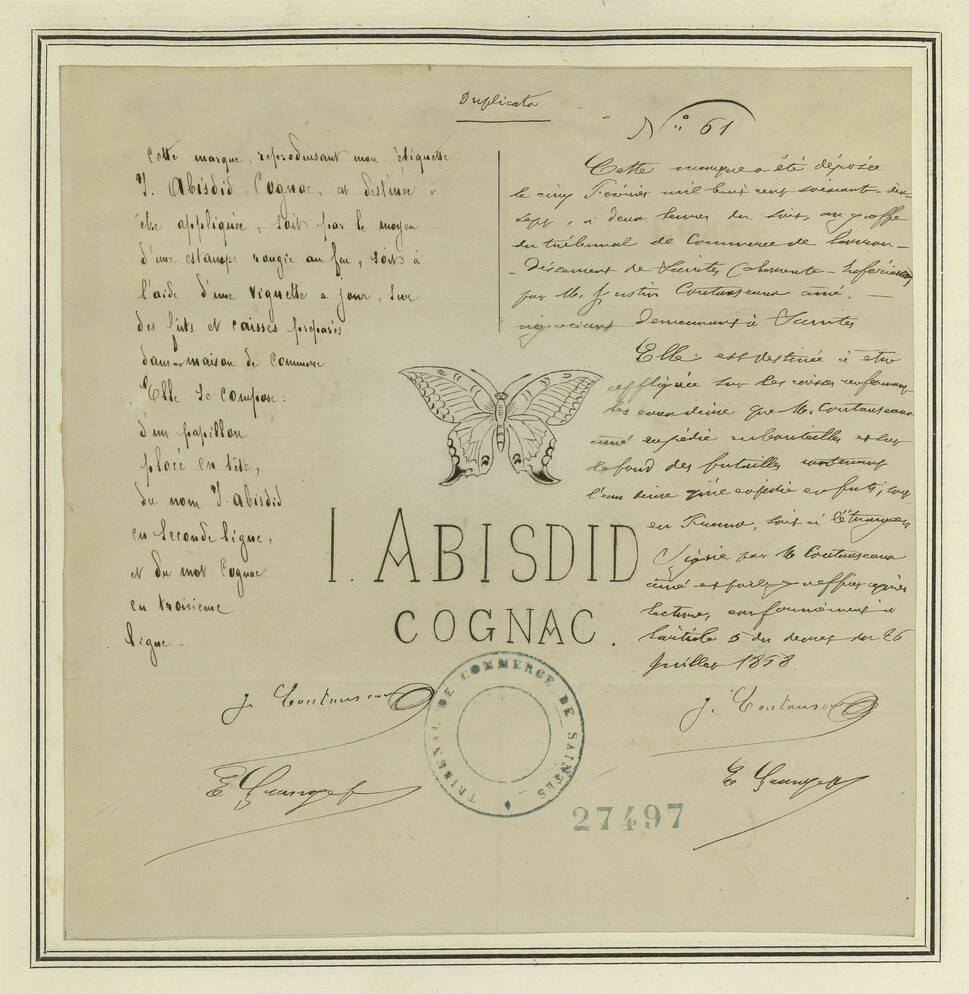 Duplicata
Cette marque, reproduisant mon étiquette
I. Abisdid, Cognac, est destinée a
être appliquée, soit par le moyen
d'une estampe rougie au feu, soit à
l'aide d'une vignette a jour, sur
des fûts et caisses préparés
dans ma maison de commerce
Elle se compose:
d'un papillon
placé en tête,
du nom I. Abisdid
en seconde ligne,
et du mot Cognac
en troisieme
ligne.
J. Coutanseaux
E Guanget
N° 61
Cette marque a été déposée
le cinq Février mil huit cent soixante-dix-
sept, à deux heures du soir, au greffe
du tribunal de Commerce de l'arron-
-dissement de Saintes (Charente-Inférieure)
par M. Justin Coutanseaux aîné,
négociant demeurant à Saintes
Elle est destinée à être
appliquée sur les caisses renfermant
les eaux de vie que M. Coutanseaux
aîné expédie en bouteilles et sur
le fond des futailles contenant
l'eau de vie qu'il expédie en fûts, soit
en France, soit à l'étranger
Signée par M Coutanseaux
aîné et par le greffier après
lecture, conformément à
l'article 5 du décret du 26
Juillet 1858
J. Coutanseaux
E Guanget
I. ABISDID
COGNAC.
TRIBUNAL DE COMMERCE DE SAINTES
27497